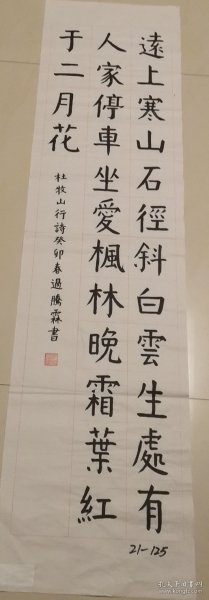 遠上寒山石徑斜白雲生處有
人家停車坐愛楓林晚霜葉紅
于二月花
杜牧山行詩癸卯春過騰霖書
21-125